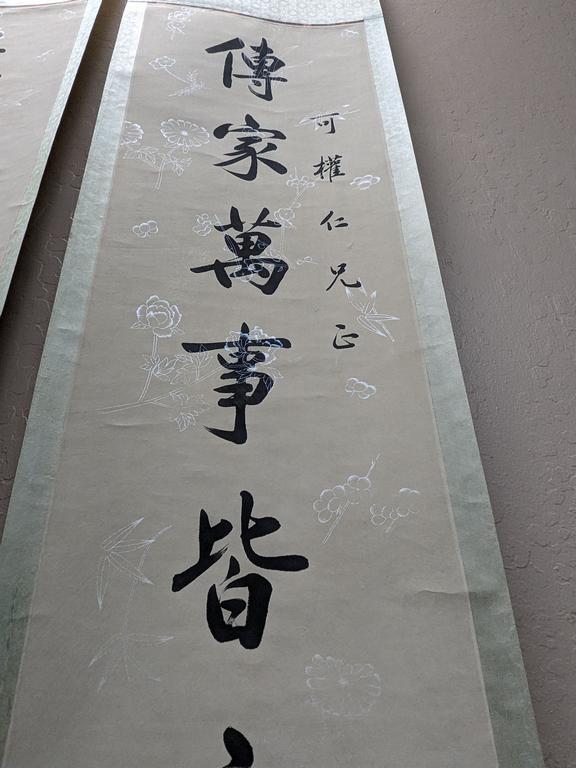 可權仁兄正
傳家萬事皆